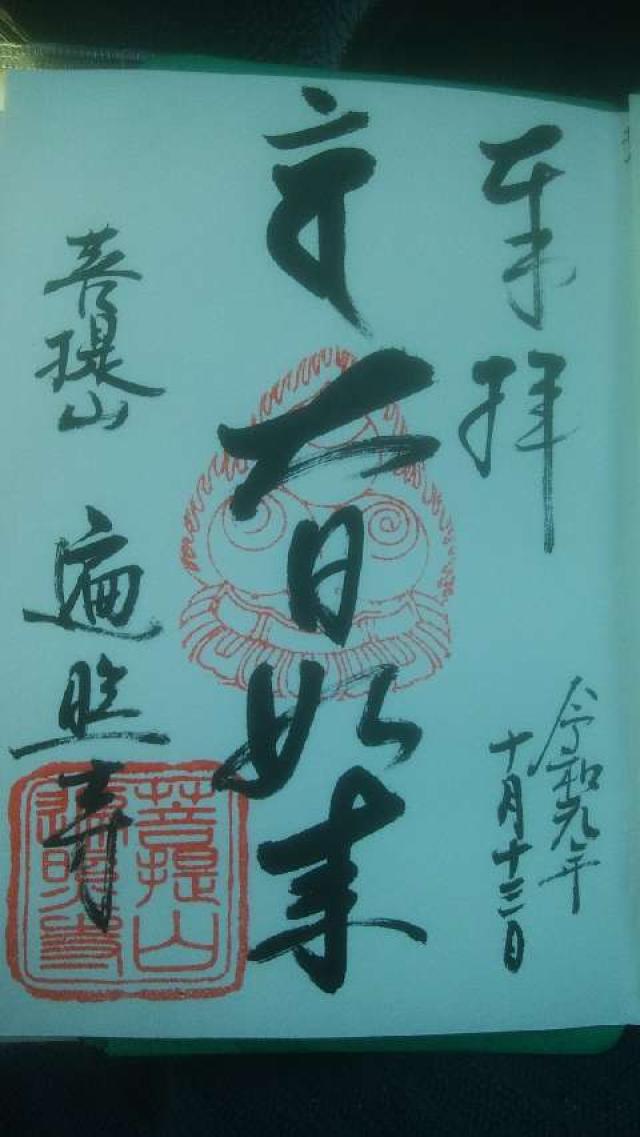 奉拝
令和元年
十月十三日
大日如来
菩提山 遍照寺
菩提山
遍照寺